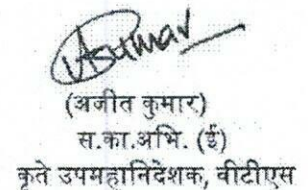 (अजीत कुमार)
स.का.अभि. (ई)
कृते उपमहानिदेशक, वीटीएस